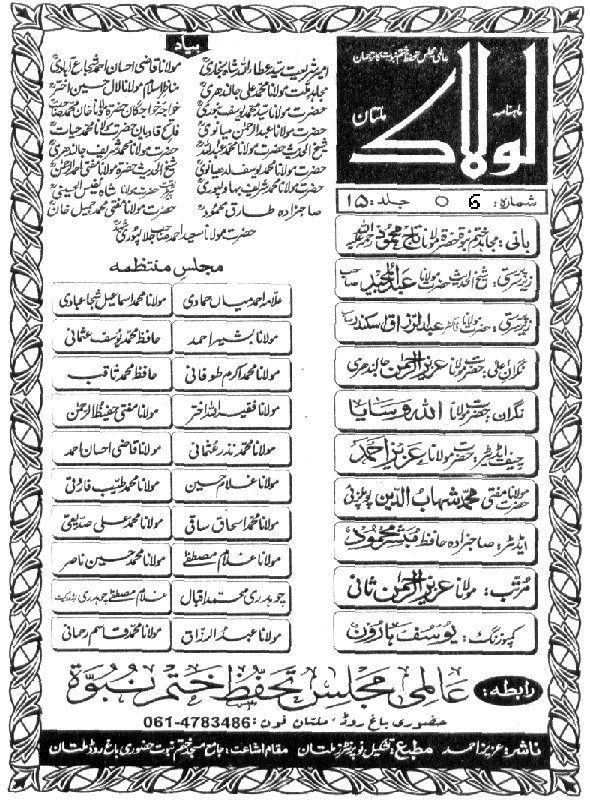 عالمی مجلس تحفظ ختم نبوت کا ترجمان
ماہنامہ
لولاک
ملتان
شمارہ: 6 ○ جلد: ۱۵
بانی: مجاہد ختم نبوۃ حضرۃ مولانا تاج محمود رحمۃ اللہ علیہ
زیرسرپرستی: شیخ الحدیث حضرت مولانا عبدالمجید صاحب
زیرسرپرستی: حضرت مولانا ڈاکٹر عبدالرزاق سکندر
نگران اعلیٰ: حضرت مولانا عزیز الرحمٰن جالندھری
نگران: حضرت مولانا اللہ وسایا
چیف ایڈیٹر: حضرت مولانا عزیز احمد
حضرت مولانا مفتی محمد شہاب الدین پوپلزئی
ایڈیٹر: صاحبزادہ حافظ مبشر محمود
مرتب: مولانا عزیز الرحمٰن ثانی
کمپوزنگ: یوسف ہارون
بیاد
امیر شریعت سید عطاء اللہ شاہ بخاری
مولانا قاضی احسان احمد شجاع آبادی
مجاہد ملت مولانا محمد علی جالندھری
مناظر اسلام مولانا لال حسین اختر
حضرت مولانا سید محمد یوسف بنوری
خواجہ خواجگان حضرۃ مولانا خان محمد
حضرت مولانا عبدالرحمٰن میانوی
فاتح قادیان حضرت مولانا محمد حیات
شیخ الحدیث حضرت مولانا محمد عبداللہ
حضرت مولانا محمد شریف جالندھری
حضرت مولانا محمد یوسف لدھیانوی
شیخ الحدیث حضرۃ مولانا مفتی احمد الرحمٰن
حضرت مولانا محمد شریف بہاولپوری
حضرت مولانا شاہ نفیس الحسینی
صاحبزادہ طارق محمود
حضرت مولانا مفتی محمد جمیل خان
حضرت مولانا سعید احمد جلالپوری
مجلس منتظمہ
علامہ احمد میاں حمادی
مولانا محمد اسماعیل شجاعبادی
مولانا بشیر احمد
حافظ محمد یوسف عثمانی
مولانا محمد اکرم طوفانی
حافظ محمد ثاقب
مولانا فقیر اللہ اختر
مولانا مفتی حفیظ الرحمٰن
مولانا محمد نذر عثمانی
مولانا قاضی احسان احمد
مولانا غلام حسین
مولانا محمد طیب فاروقی
مولانا محمد اسحاق ساقی
مولانا محمد علی صدیقی
مولانا غلام مصطفےٰ
مولانا محمد حسین ناصر
چوہدری محمد اقبال
غلام مصطفےٰ چوہدری
مولانا عبدالرزاق
مولانا محمد قاسم رحمانی
رابطہ: عالمی مجلس تحفظ ختم نبوۃ
حضوری باغ روڈ، ملتان فون: 061-4783486
ناشر: عزیز احمد مطبع: تشکیل نو پرنٹرز ملتان مقام اشاعت: جامع مسجد ختم نبوت حضوری باغ روڈ ملتان